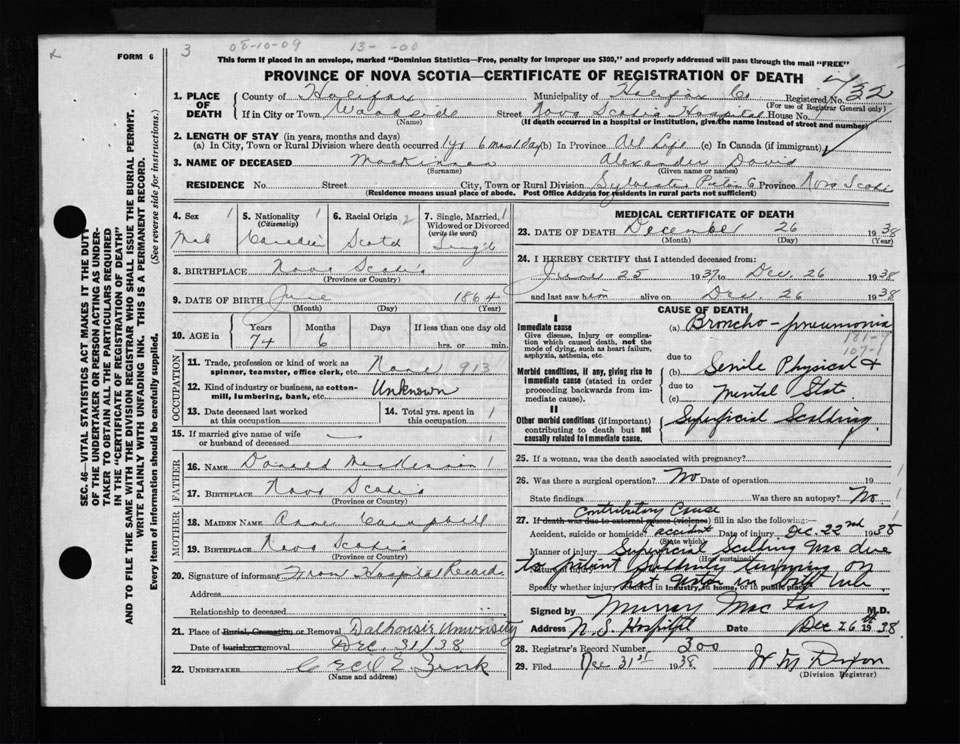 FORM 6
3 08-10-09 13- -00
This form if placed in an envelope, marked "Dominion Statistics—Free, penalty for improper use $300," and properly addressed will pass through the mail "FREE"
PROVINCE OF NOVA SCOTIA—CERTIFICATE OF REGISTRATION OF DEATH
1. PLACE OF DEATH County of Halifax Municipality of Halifax Co Registered No. 732
(For use of Registrar General only)
If in City or Town Woodside Street Nova Scotia Hospital House No.
(Name) (If death occurred in a hospital or institution, give the name instead of street and number)
2. LENGTH OF STAY (in years, months and days)
(a) In City, Town or Rural Division where death occurred 1yr 6 mos 1 day (b) In Province All Life (c) In Canada (if immigrant)
3. NAME OF DECEASED MacKinnon Alexander David
(Surname) (Given name or names)
RESIDENCE No. Street City, Town or Rural Division Sylvester Pictou Co Province Nova Scotia
(Residence means usual place of abode. Post Office Address for residents in rural parts not sufficient)
4. Sex 1 Male
5. Nationality (Citizenship) 1 Canadian
6. Racial Origin 2 Scotch
7. Single, Married, Widowed or Divorced (write the word) 1 Single
8. BIRTHPLACE Nova Scotia
(Province or Country)
9. DATE OF BIRTH June 1864
(Month) (Day) (Year)
10. AGE in Years Months Days If less than one day old
74 6 hrs. or min.
OCCUPATION
11. Trade, profession or kind of work as spinner, teamster, office clerk, etc. None 913
12. Kind of industry or business, as cotton-mill, lumbering, bank, etc. Unknown
13. Date deceased last worked at this occupation
14. Total yrs. spent in this occupation
15. If married give name of wife or husband of deceased —
FATHER
16. NAME Donald MacKinnon
17. BIRTHPLACE Nova Scotia
(Province or Country)
MOTHER
18. MAIDEN NAME Annie Campbell
19. BIRTHPLACE Nova Scotia
(Province or Country)
20. Signature of informant From Hospital Record
Address
Relationship to deceased
21. Place of Burial, Cremation or Removal Dalhousie University
Date of burial or removal Dec. 31/38
22. UNDERTAKER Cecil E. Zink
(Name and address)
MEDICAL CERTIFICATE OF DEATH
23. DATE OF DEATH December 26 1938
(Month) (Day) (Year)
24. I HEREBY CERTIFY that I attended deceased from:
June 25 1937 to Dec. 26 1938
and last saw him alive on Dec. 26 1938
CAUSE OF DEATH
I
Immediate cause
Give disease, injury or complication which caused death, not the mode of dying, such as heart failure, asphyxia, asthenia, etc.
(a) Broncho-pneumonia
due to
Morbid conditions, if any, giving rise to immediate cause (stated in order proceeding backwards from immediate cause).
(b) Senile Physical &
due to
(c) Mental Stat.
II
Other morbid conditions (if important) contributing to death but not causally related to immediate cause.
Superficial Scalding
25. If a woman, was the death associated with pregnancy?
26. Was there a surgical operation? No Date of operation 19
State findings Was there an autopsy? No
Contributory Cause
27. If death was due to external causes (violence) fill in also the following:—
Accident, suicide or homicide? accident Date of injury Dec. 22nd 1938
(State which)
Manner of injury Superficial Scalding was due
(How sustained)
Nature of injury to patient suddenly turning on
Specify whether injury occurred in industry, in home, or in public place hot water in bath tub
Signed by Murray MacKay M.D.
Address N.S. Hospital Date Dec 26th 1938.
28. Registrar's Record Number 200
29. Filed Dec 31st 1938
(Division Registrar)
SEC. 46—VITAL STATISTICS ACT MAKES IT THE DUTY OF THE UNDERTAKER OR PERSON ACTING AS UNDERTAKER TO OBTAIN ALL THE PARTICULARS REQUIRED IN THE "CERTIFICATE OF REGISTRATION OF DEATH"
AND TO FILE THE SAME WITH THE DIVISION REGISTRAR WHO SHALL ISSUE THE BURIAL PERMIT.
WRITE PLAINLY WITH UNFADING INK. THIS IS A PERMANENT RECORD.
Every item of information should be carefully supplied. (See reverse side for instructions.)